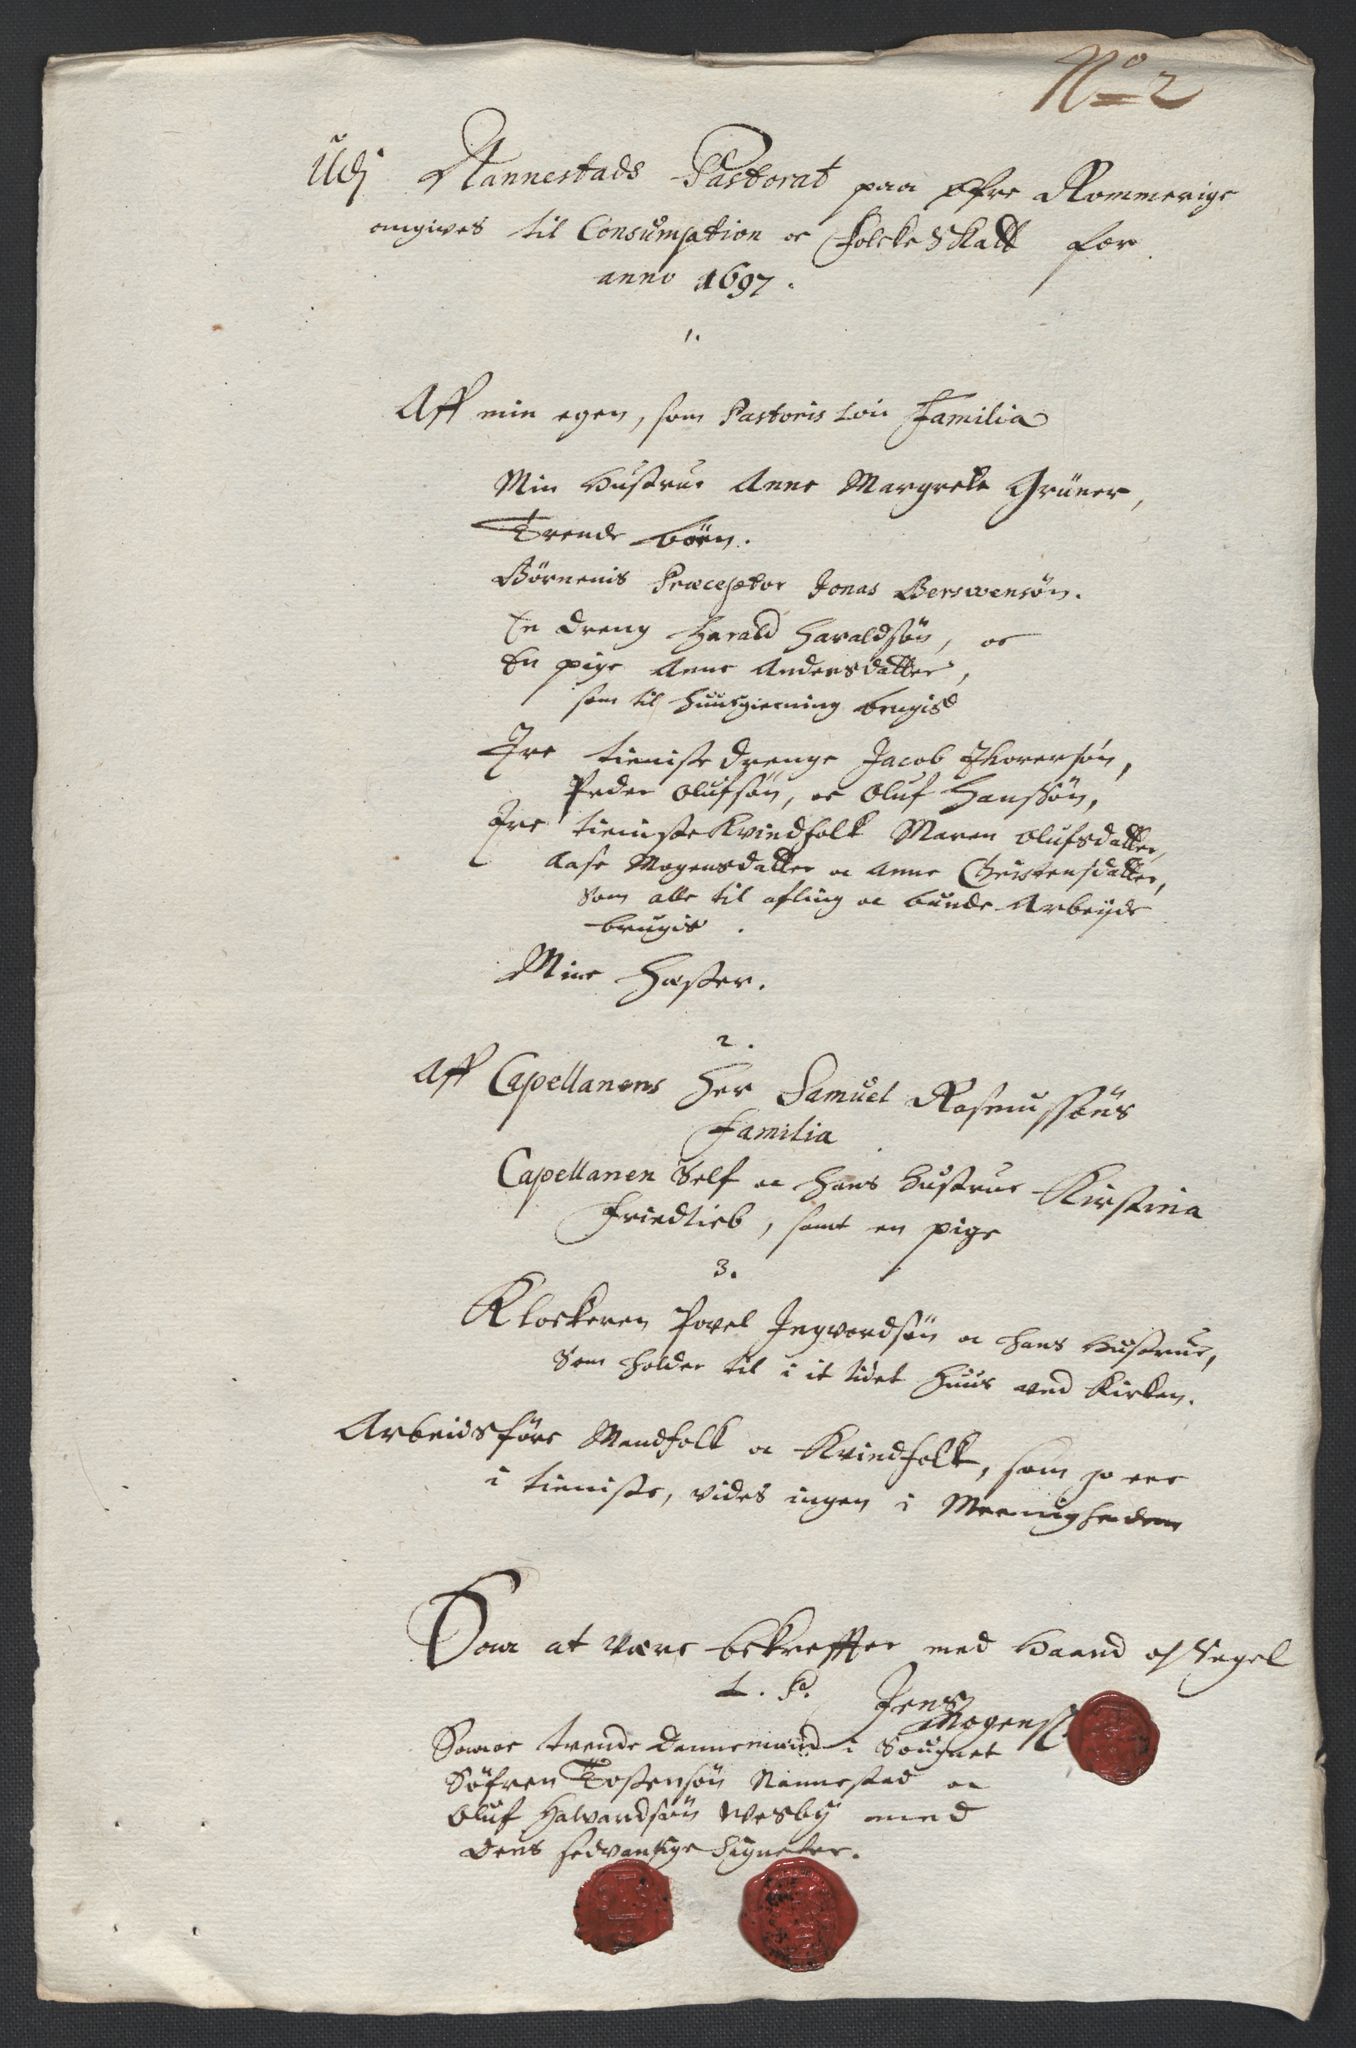 No 2
Udj Nannestads Pastorat paa øfre Rommerige
angives til Consumption oc Folcke Skatt for
anno 1697.
1.
Aff min egen, som Pastoris Loci Familia
Min Hustrue Anne Margrete Grüner,
Trende börn.
Börnenis Præceptor Jonas Berswensön.
En dreng Harald Haraldsön, oc
En pige Anne Andersdatter,
som til huusgierning brugis
Tre tieniste drenge Jacob
Peder Olufsön, oc Oluf Hanssön,
Tre tieniste Kvindfolk Maren Olufsdatter,
Aase Mogensdatter oc Anne Christensdatter,
Som alle til afling oc bunde Arbeyde
brugis.
Mine Hester.
2.
Aff Capellanens Her Samuel Rasmussöns
Familia
Capellanen Self oc hans Hustrue Kirstina
Friedlieb, samt en pige
3.
Klockeren Povel Ingvordsön oc hans Hustrue,
Som holder til i it lidet huus ved Kirken.
Arbeidsföre Mandfolk oc Kvindfolk, som jo ere
i tieniste, vides ingen i Meenigheden
Saa at være bekreffter med Haand oc Segel
L. S. Jens
Mogens
Samt trende Dannemænd i Sougnet
Söfren Tostensön Nannestad oc
Oluf Halvardsön Wesby med
deris sedvanlige Signeter.